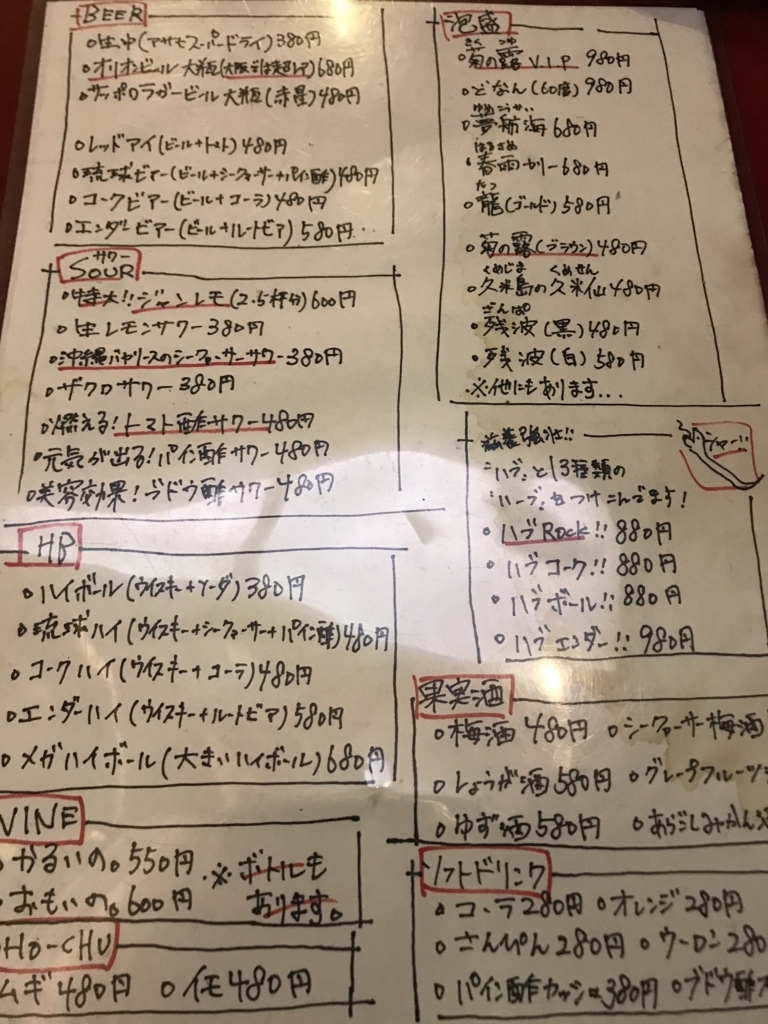 BEER
○生中(アサヒスーパードライ)380円
○オリオンビール 大瓶(大阪では超レア)680円
○サッポロラガービール 大瓶(赤星)480円
○レッドアイ(ビール+トマト)480円
○琉球ビアー(ビール+シークァーサー+パイン酢)480円
○コークビアー(ビール+コーラ)480円
○エンダービアー(ビール+ルートビア)580円
サワー
SOUR
○特大!!ジャンレモ(2.5杯分)600円
○生レモンサワー380円
○沖縄バヤリースのシークァーサーサワー380円
○ザクロサワー380円
○燃える!トマト酢サワー480円
○元気が出る!パイン酢サワー480円
○美容効果!ブドウ酢サワー480円
HB
○ハイボール(ウイスキー+ソーダ)380円
○琉球ハイ(ウイスキー+シークァーサー+パイン酢)480円
○コークハイ(ウイスキー+コーラ)480円
○エンダーハイ(ウイスキー+ルートビア)580円
○メガハイボール(大きいハイボール)680円
WINE
○かるいの。550円 ※ボトルも
○おもいの。600円 あります。
HO-CHU
ムギ480円 ○イモ480円
泡盛
きく つゆ
○菊の露V.I.P 980円
○どなん(60度)980円
○夢航海680円
はるさめ
○春雨カリー680円
たつ
○龍(ゴールド)580円
○菊の露(ブラウン)480円
くめじま くめせん
○久米島の久米仙480円
ざんぱ
○残波(黒)480円
○残波(白)580円
※他にもあります...
滋養強壮!!
"ハブ"と13種類の
"ハーブ"をつけこんでます!
シャー!!
○ハブRock!! 880円
○ハブコーク!! 880円
○ハブボール!! 880円
○ハブエンダー!! 980円
果実酒
○梅酒480円 ○シークァーサー梅酒
○しょうが酒580円 ○グレープフルーツ
○ゆず酒580円 ○あらごしみかん
ソフトドリンク
○コーラ280円 ○オレンジ280円
○さんぴん280円 ○ウーロン280
○パイン酢 380円 ○ブドウ酢